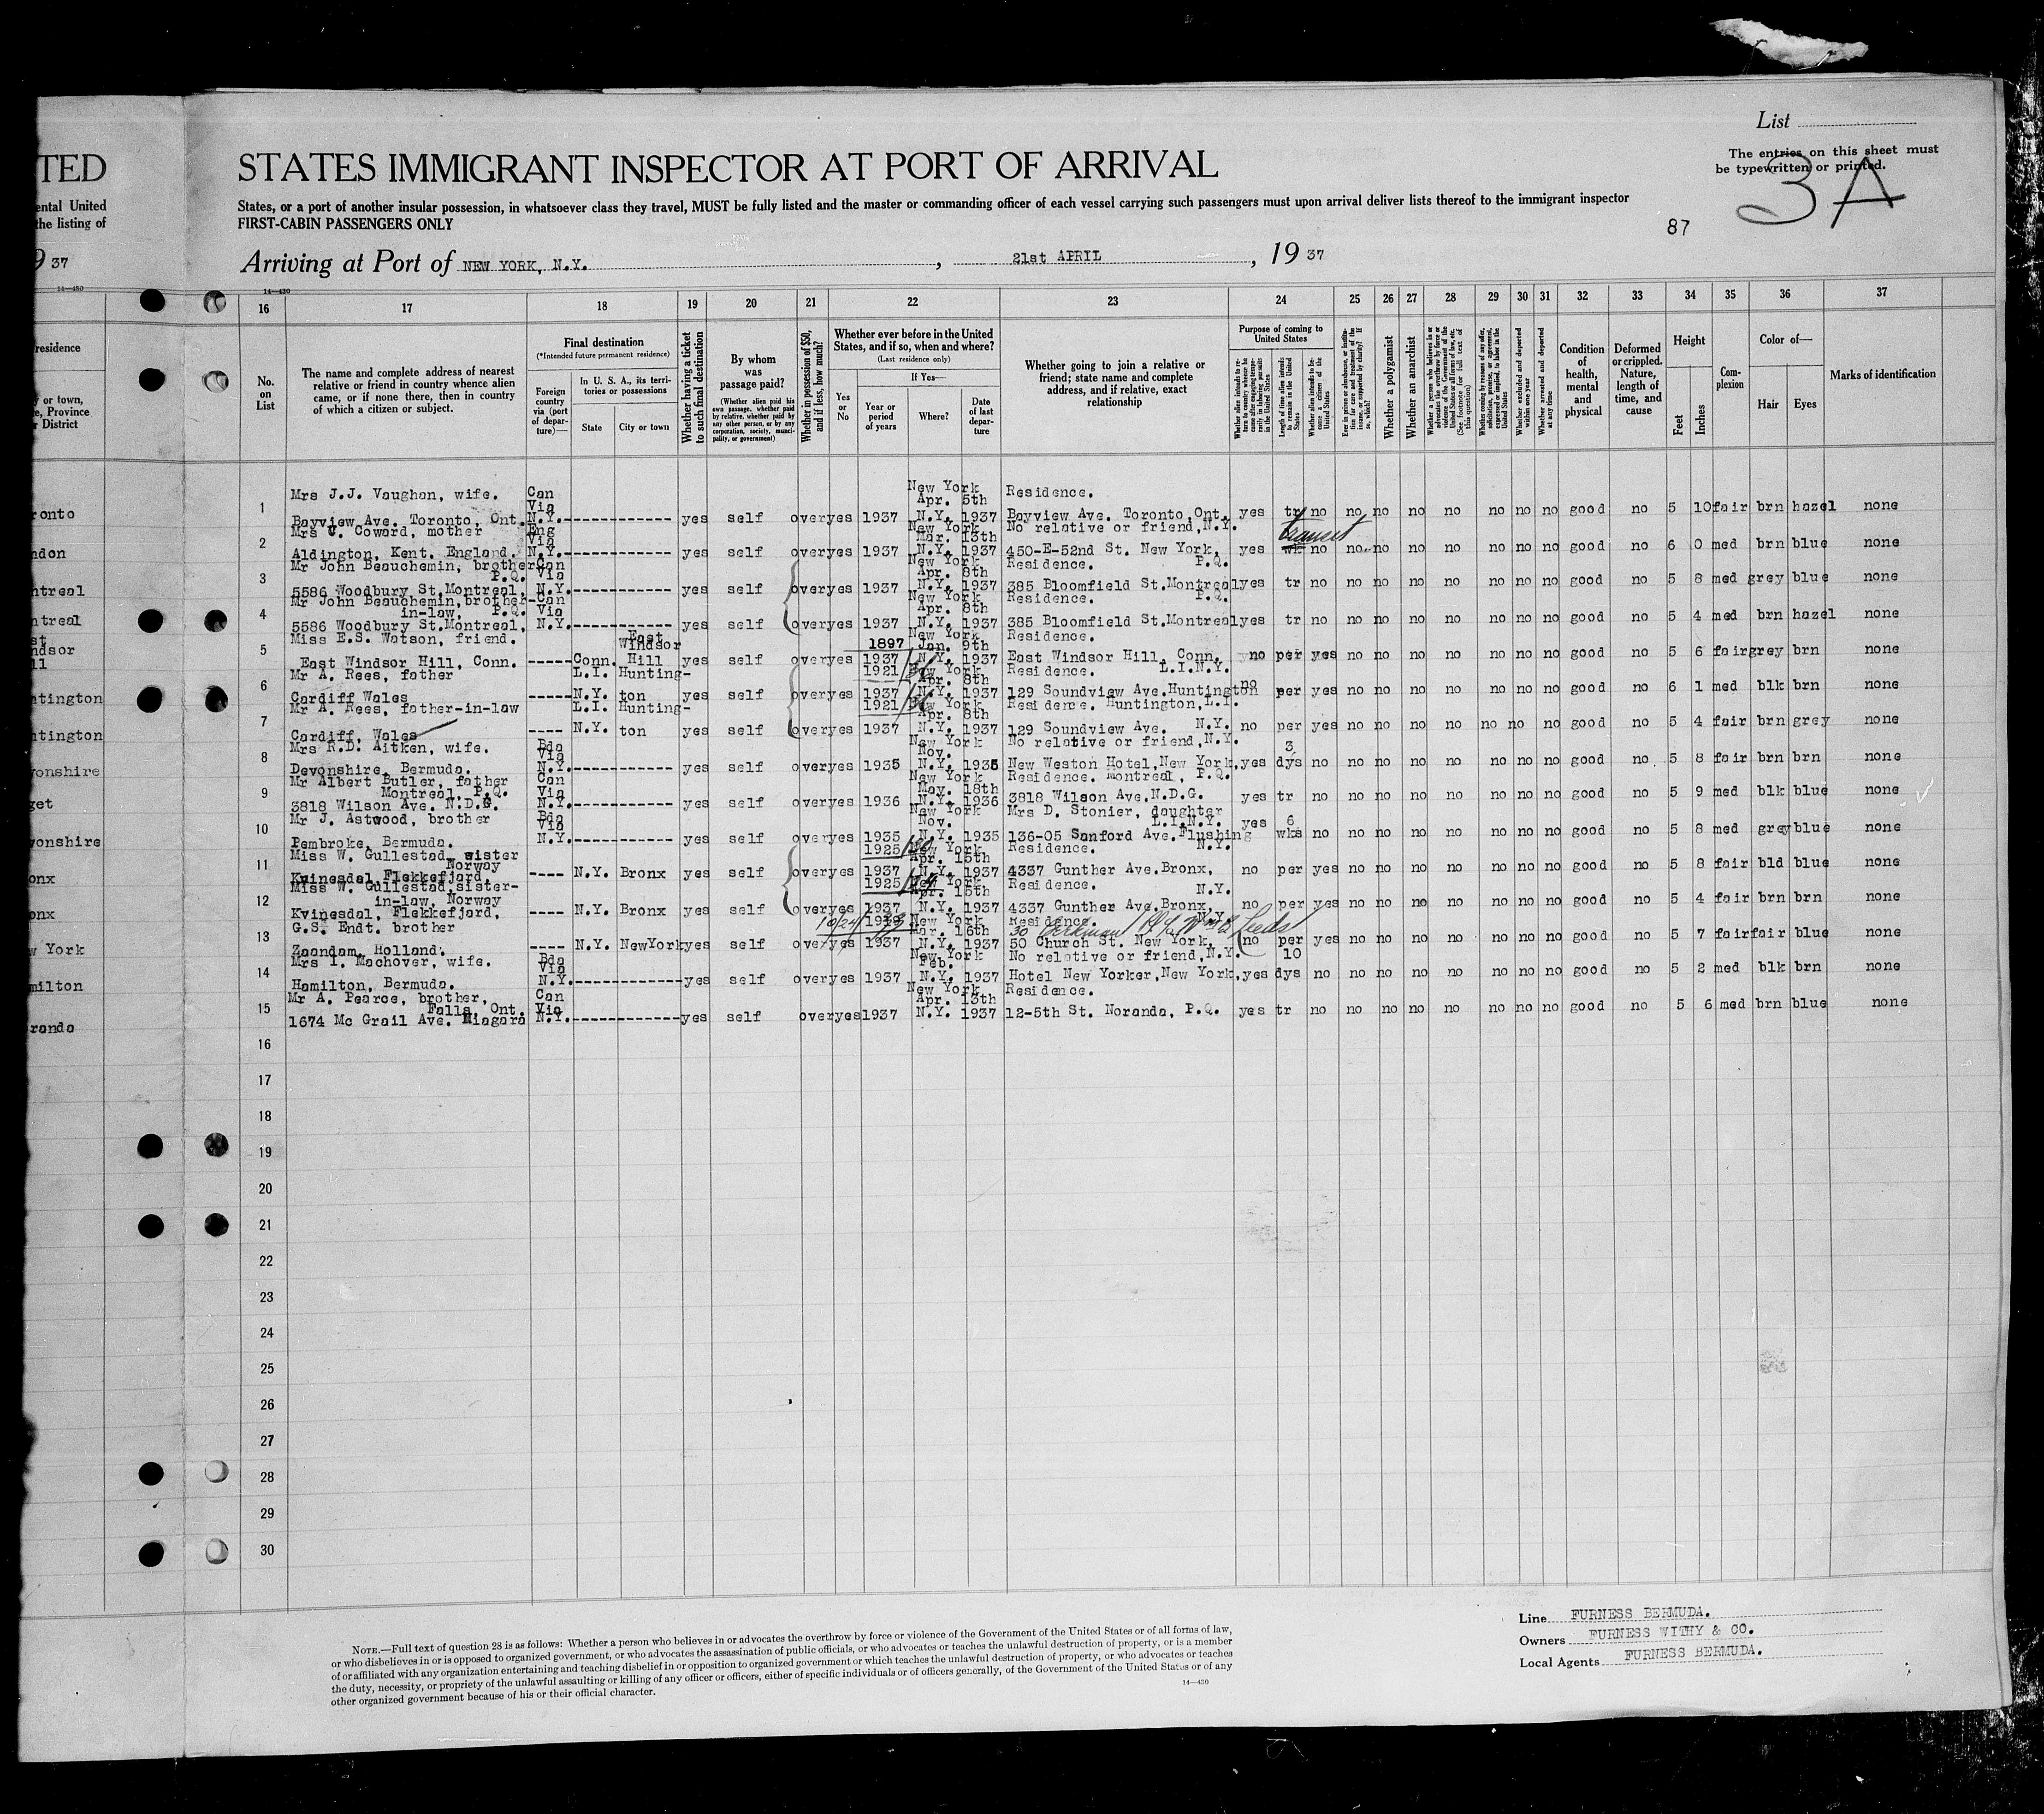 List
The entries on this sheet must
be typewritten or printed.
3 A
87
TED
STATES IMMIGRANT INSPECTOR AT PORT OF ARRIVAL
ental United
the listing of
States, or a port of another insular possession, in whatsoever class they travel, MUST be fully listed and the master or commanding officer of each vessel carrying such passengers must upon arrival deliver lists thereof to the immigrant inspector
FIRST-CABIN PASSENGERS ONLY
9 37
Arriving at Port of NEW YORK, N.Y. , 21st APRIL , 19 37
14—430
14—430
16 17 18 19 20 21 22 23 24 25 26 27 28 29 30 31 32 33 34 35 36 37
residence
y or town,
e, Province
r District
No.
on
List
The name and complete address of nearest
relative or friend in country whence alien
came, or if none there, then in country
of which a citizen or subject.
Final destination
(*Intended future permanent residence)
Foreign
country
via (port
of depar-
ture)—
In U. S. A., its terri-
tories or possessions
State
City or town
Whether having a ticket
to such final destination
By whom
was
passage paid?
(Whether alien paid his
own passage, whether paid
by relative, whether paid by
any other person, or by any
corporation, society, munici-
pality, or government)
Whether in possession of $50,
and if less, how much?
Whether ever before in the United
States, and if so, when and where?
(Last residence only)
Yes
or
No
If Yes—
Year or
period
of years
Where?
Date
of last
depar-
ture
Whether going to join a relative or
friend; state name and complete
address, and if relative, exact
relationship
Purpose of coming to
United States
Whether alien intends to re-
turn to country whence he
came after engaging tempo-
rarily in laboring pursuits
in the United States
Length of time alien intends
to remain in the United
States
Whether alien intends to be-
come a citizen of the
United States
Ever in prison or almshouse, or institu-
tion for care and treatment of the
insane, or supported by charity? If
so, which?
Whether a polygamist
Whether an anarchist
Whether a person who believes in or
advocates the overthrow by force or
violence of the Government of the
United States or all forms of law, etc.
(See footnote for full text of
this question)
Whether coming by reason of any offer,
solicitation, promise, or agreement,
expressed or implied, to labor in the
United States
Whether excluded and deported
within one year
Whether arrested and deported
at any time
Condition
of
health,
mental
and
physical
Deformed
or crippled.
Nature,
length of
time, and
cause
Height
Feet
Inches
Com-
plexion
Color of—
Hair
Eyes
Marks of identification
Mrs J.J. Vaughan, wife. Can New York Residence.
Via Apr. 5th
ronto 1 Bayview Ave. Toronto, Ont. N.Y.------------- yes self over yes 1937 N.Y. 1937 Bayview Ave. Toronto, Ont. yes tr no no no no no no no no good no 5 10 fair brn hazel none
Mrs C. Coward, mother Eng New York No relative or friend, N.Y. transit
Via Mar. 13th
ndon 2 Aldington, Kent. England. N.Y.------------- yes self over yes 1937 N.Y. 1937 450-E-52nd St. New York, yes wk no no no no no no no no good no 6 0 med brn blue none
Mr John Beauchemin, brother Can New York Residence. P.Q.
P.Q. Via Apr. 8th
ntreal 3 5586 Woodbury St. Montreal, N.Y.------------- yes self over yes 1937 N.Y. 1937 385 Bloomfield St. Montreal yes tr no no no no no no no no good no 5 8 med grey blue none
Mr John Beauchemin, brother- Can New York Residence. P.Q.
in-law, P.Q. Via Apr. 8th
ntreal 4 5586 Woodbury St. Montreal, N.Y.------------- yes self over yes 1937 N.Y. 1937 385 Bloomfield St. Montreal yes tr no no no no no no no no good no 5 4 med brn hazel none
st Miss E.S. Watson, friend. East New York Residence.
ndsor Windsor 1897 Jan. 9th
ll 5 East Windsor Hill, Conn. ----- Conn. Hill yes self over yes 1937 N.Y. 1937 East Windsor Hill, Conn. no per yes no no no no no no no good no 5 6 fair grey brn none
Mr A. Rees, father L.I. Hunting- 1921 New York Residence. L.I.N.Y.
Apr. 8th
ntington 6 Cardiff Wales ----- N.Y. ton yes self over yes 1937 N.Y. 1937 129 Soundview Ave. Huntington no per yes no no no no no no no good no 6 1 med blk brn none
Mr A. Rees, father-in-law L.I. Hunting- 1921 New York Residence. Huntington, L.I.
Apr. 8th
ntington 7 Cardiff, Wales ---- N.Y. ton yes self over yes 1937 N.Y. 1937 129 Soundview Ave. N.Y. no per yes no no no no no no no good no 5 4 fair brn grey none
Mrs R.D. Aitken, wife. Bda New York No relative or friend, N.Y. 3
Via Nov.
vonshire 8 Devonshire, Bermuda. N.Y.------------- yes self over yes 1935 N.Y. 1935 New Weston Hotel, New York, yes dys no no no no no no no no good no 5 8 fair brn brn none
Mr Albert Butler, father Can New York Residence. Montreal, P.Q.
Montreal, P.Q. Via May. 18th
get 9 3818 Wilson Ave. N.D.G. N.Y.------------- yes self over yes 1936 N.Y. 1936 3818 Wilson Ave. N.D.G. yes tr no no no no no no no no good no 5 9 med blk blue none
Mr J. Astwood, brother Bda New York Mrs D. Stonier, daughter
Via Nov. L.I.N.Y. yes 6
vonshire 10 Pembroke, Bermuda. N.Y.------------- yes self over yes 1935 N.Y. 1935 136-05 Sanford Ave. Flushing wks no no no no no no no no good no 5 8 med grey blue none
Miss W. Gullestad, sister 1925 New York Residence. N.Y.
Norway Apr. 15th
onx 11 Kvinesdal, Flekkefjord, ---- N.Y. Bronx yes self over yes 1937 N.Y. 1937 4337 Gunther Ave. Bronx, no per yes no no no no no no no good no 5 8 fair bld blue none
Miss W. Gullestad, sister- 1925 New York Residence. N.Y.
in-law, Norway Apr. 15th
onx 12 Kvinesdal, Flekkefjord, ---- N.Y. Bronx yes self over yes 1937 N.Y. 1937 4337 Gunther Ave. Bronx, no per yes no no no no no no no good no 5 4 fair brn brn none
G.S. Endt. brother New York Residence. N.Y.
Mar. 16th 30
w York 13 Zaandam, Holland. ---- N.Y. New York yes self over yes 1937 N.Y. 1937 50 Church St. New York, no per yes no no no no no no no good no 5 7 fair fair blue none
Mrs I. Machover, wife. Bda New York No relative or friend, N.Y. 10
Via Feb.
milton 14 Hamilton, Bermuda. N.Y.------------- yes self over yes 1937 N.Y. 1937 Hotel New Yorker, New York, yes dys no no no no no no no no good no 5 2 med blk brn none
Mr A. Pearce, brother, Can New York Residence.
Falls, Ont. Via Apr. 13th
randa 15 1674 Mc Grail Ave. Niagara N.Y.------------- yes self over yes 1937 N.Y. 1937 12-5th St. Noranda, P.Q. yes tr no no no no no no no no good no 5 6 med brn blue none
16
17
18
19
20
21
22
23
24
25
26
27
28
29
30
NOTE.—Full text of question 28 is as follows: Whether a person who believes in or advocates the overthrow by force or violence of the Government of the United States or of all forms of law,
or who disbelieves in or is opposed to organized government, or who advocates the assassination of public officials, or who advocates or teaches the unlawful destruction of property, or is a member
of or affiliated with any organization entertaining and teaching disbelief in or opposition to organized government or which teaches the unlawful destruction of property, or who advocates or teaches
the duty, necessity, or propriety of the unlawful assaulting or killing of any officer or officers, either of specific individuals or of officers generally, of the Government of the United States or of any
other organized government because of his or their official character.
14—430
Line FURNESS BERMUDA.
Owners FURNESS WITHY & CO.
Local Agents FURNESS BERMUDA.